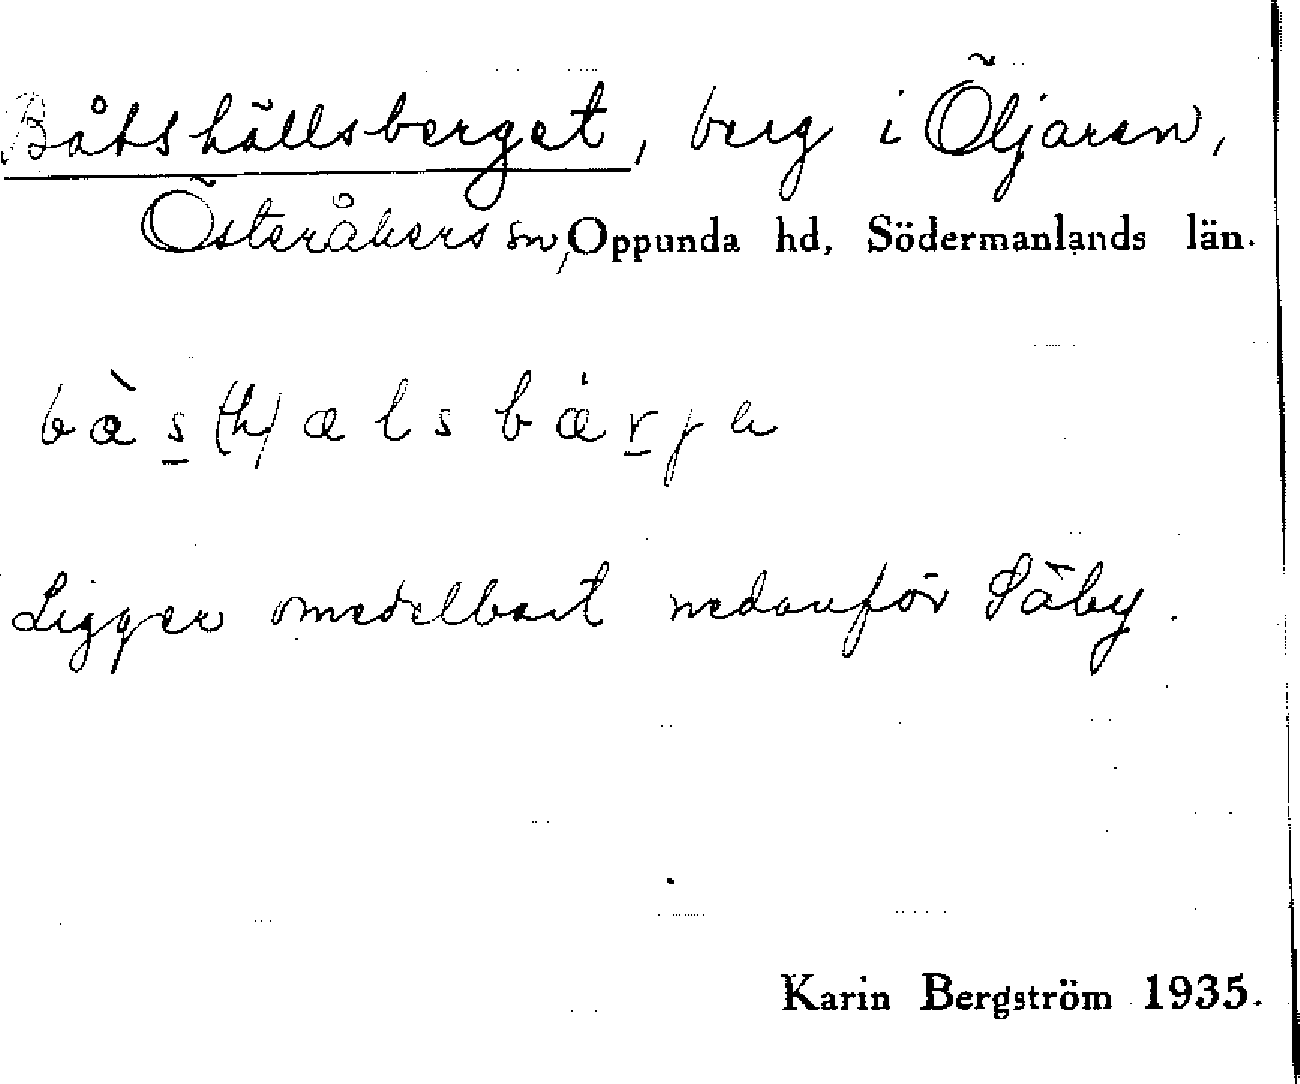 Båtshällsberget, berg i Öljaren,
Österåkers sn, Oppunda hd, Södermanlands län.
bàs(h)alsbárja
Ligger omedelbart nedanför Säby.
Karin Bergström 1935.